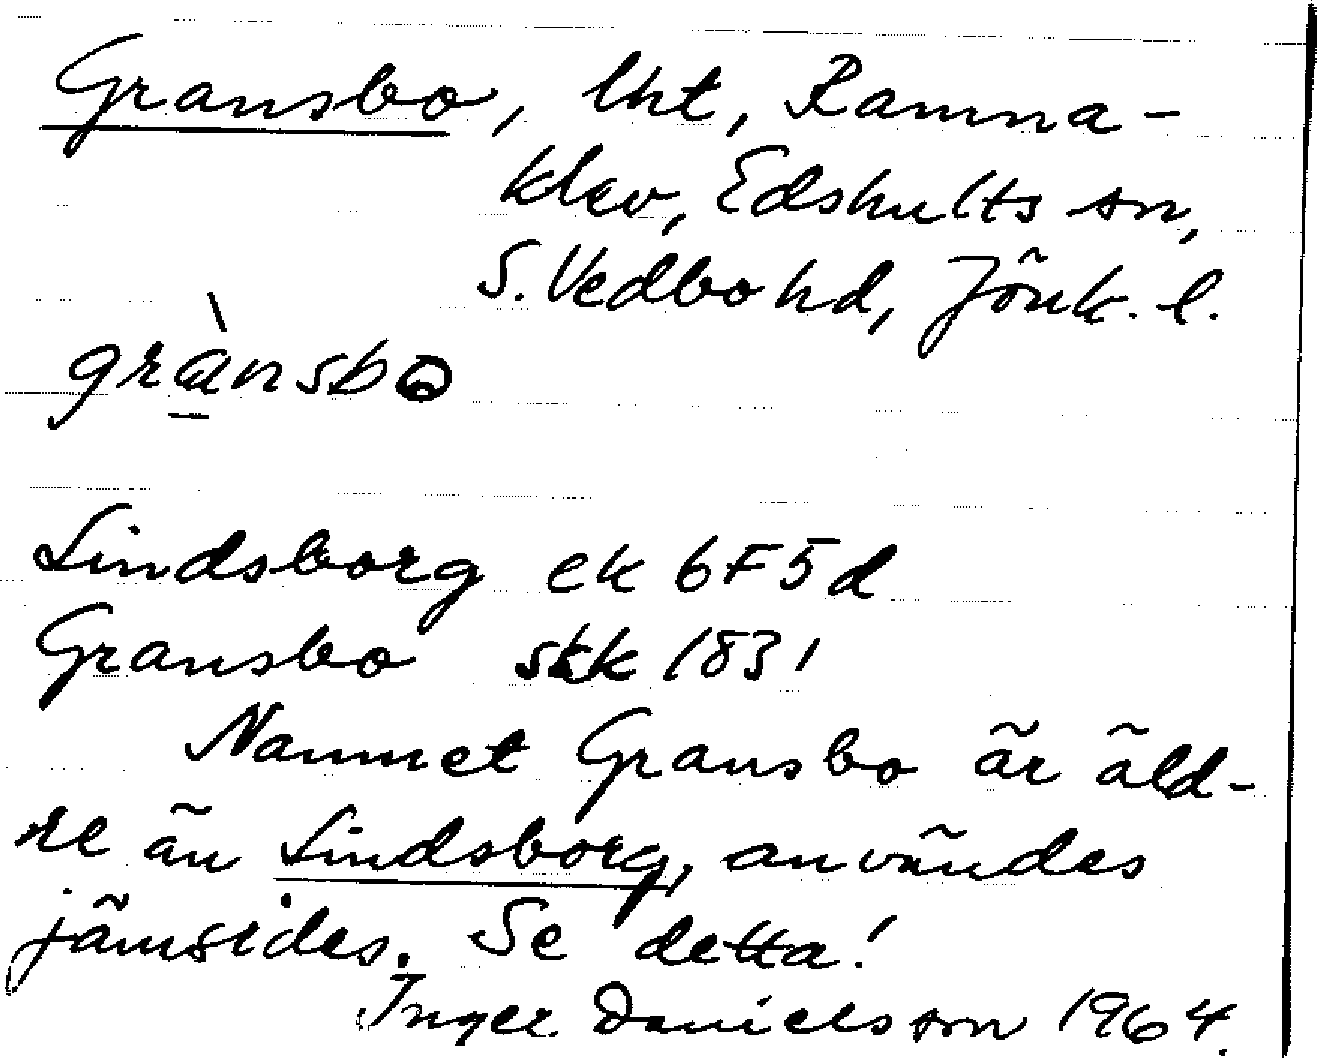 Gransbo, lht, Ramna-
klev, Edshults sn,
S. Vedbo hd, Jönk. l.
grànsbo
Lindsborg ek 6F5d
Gransbo skk 1831
Namnet Gransbo är äld-
re än Lindsborg, användes
jämsides. Se detta!
Inger Danielsson 1964.